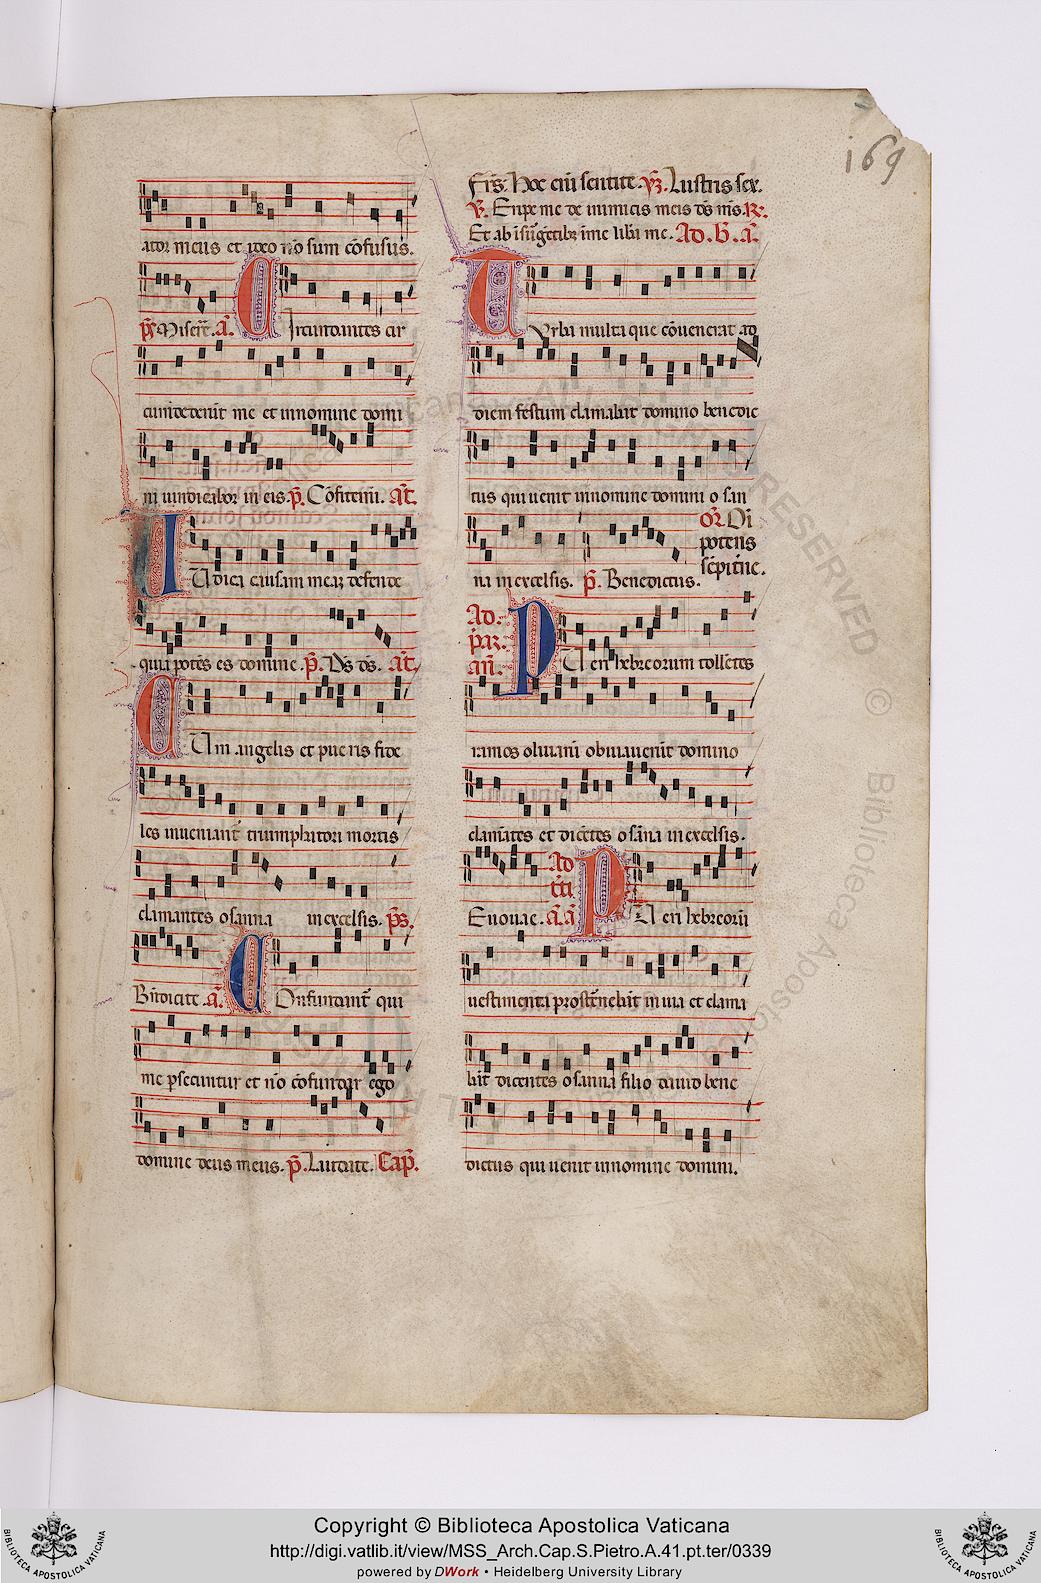 169
ator meus et ideo nō sum cōfusus.
p̄s Miserē. a͞. Circundantes cir
cumdederūt me et in nomine domi
ni vindicabor in eis. p̄. Cōfitemi. a͞t.
Iudica causam meaʒ defende
quia potēs es domine. p̄. Ds ds. a͞t.
Cum angelis et pueris fide
les inueniant̄ triumphatori mortis
clamantes osanna in excelsis. p̄s.
Bn̄dicite. a͞. Confundant̄ qui
me ꝑsecuntur et nō cōfundar ego
domine deus meus. p̄. Laudate. Cap̄.
Fr̄s. Hoc eni sentite. ym̄. Lustris sex.
V̄. Eripe me de inimicis meis ds ms. R̄.
Et ab insurgētibꝫ in me libera me. Ad. b̄. a͞.
Turba multa que cōuenerat ad
diem festum clamabat domino benedic
tus qui uenit in nomine domini osan
na in excelsis. p̄. Benedictus.
Or̄. Oī
potens
sēpit̄ne.
Ad.
p̄ar.
an̄.
Pueri hebreorum tollētes
ramos oliuarū obuiauerūt domino
clamātes et dicētes osāna in excelsis.
Euouae. Ad
t̄ti
a͞. a͞. Pueri hebreorū
uestimenta prost̄nebāt in uia et clama
bāt dicentes osanna filio dauid bene
dictus qui uenit in nomine domini.
RESERVED © Biblioteca Apostolica
Copyright © Biblioteca Apostolica Vaticana
http://digi.vatlib.it/view/MSS_Arch.Cap.S.Pietro.A.41.pt.ter/0339
powered by DWork • Heidelberg University Library
BIBLIOTECA APOSTOLICA VATICANA
BIBLIOTECA APOSTOLICA VATICANA